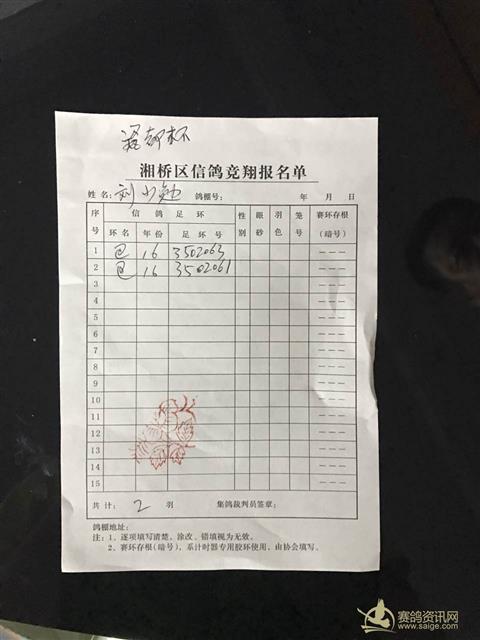 杯
湘桥区信鸽竞翔报名单
姓名: 刘小勉 鸽棚号: 年 月 日
序号 信鸽足环 性别 眼砂 羽色 笼号 赛环存根(暗号)
环名 年份 足环号
1 16 3502063 ---
2 16 3502061 ---
3 ---
4 ---
5 ---
6 ---
7 ---
8 ---
9 ---
10 ---
11 ---
12 ---
13 ---
14 ---
15 ---
共计: 2 羽 集鸽裁判员签章:
鸽棚地址:
注: 1、逐项填写清楚,涂改、错填视为无效。
2、赛环存根(暗号),系计时器专用胶环使用,由协会填写。
赛鸽资讯网
www.saige.com